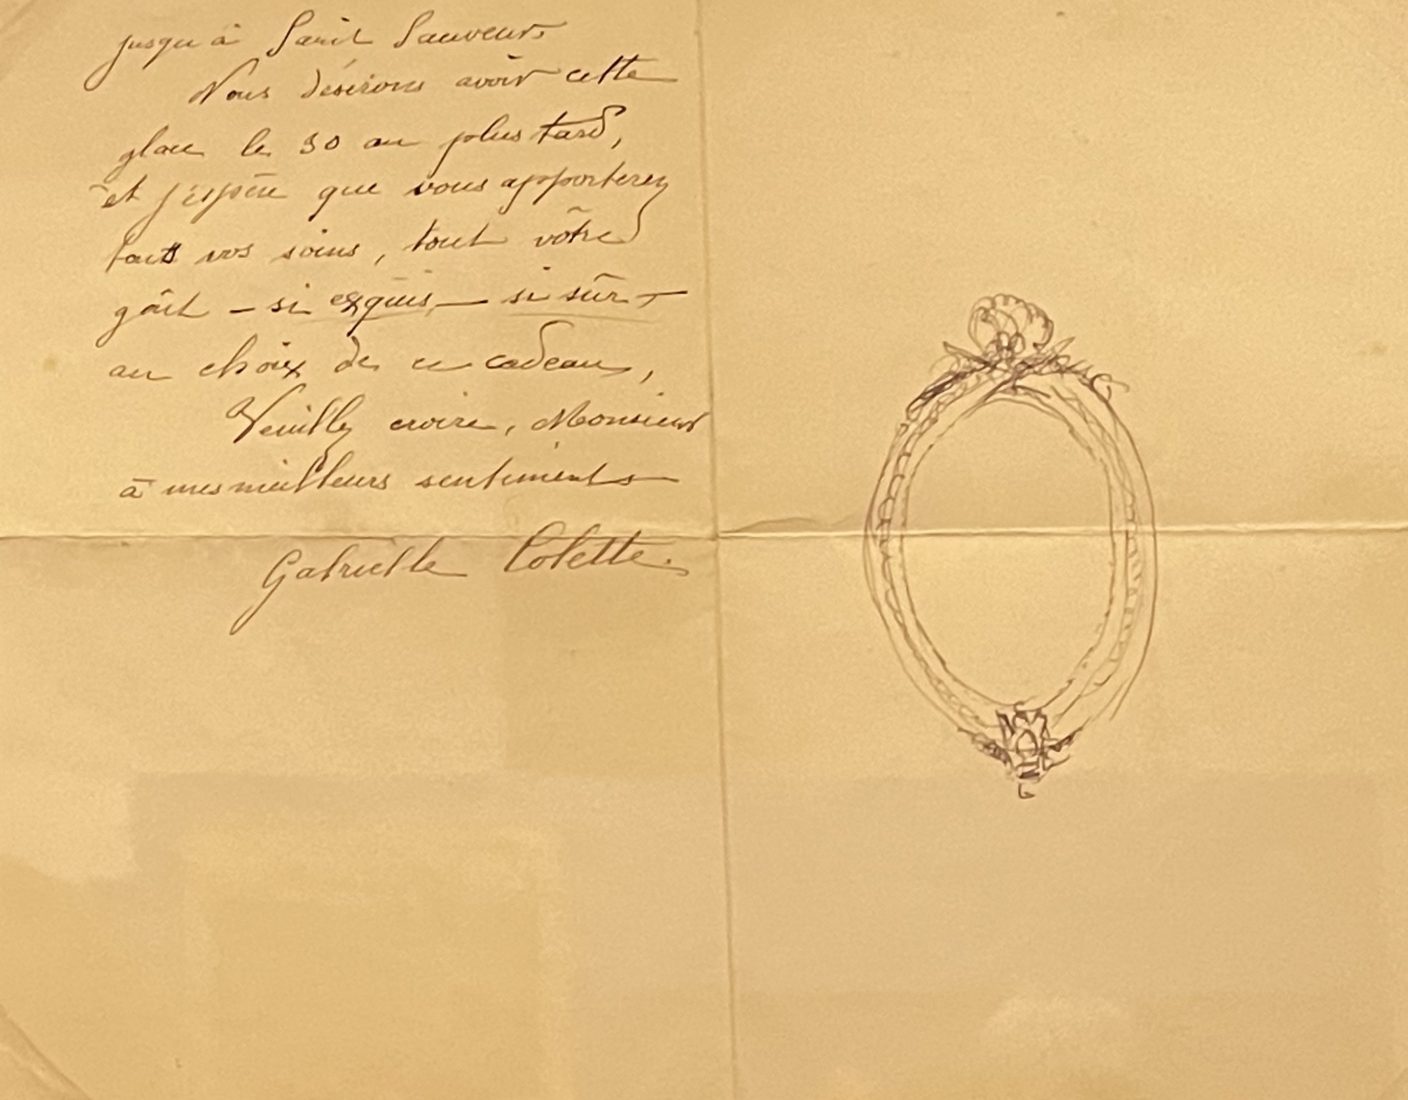 jusqu'à Saint Sauveur.
Nous désirons avoir cette
glace le 30 au plus tard,
et j'espère que vous apporterez
tous vos soins, tout vôtre
goût – si exquis, – si sûr –
au choix de ce cadeau,
Veuillez croire, Monsieur
à mes meilleurs sentiments
Gabrielle Colette.